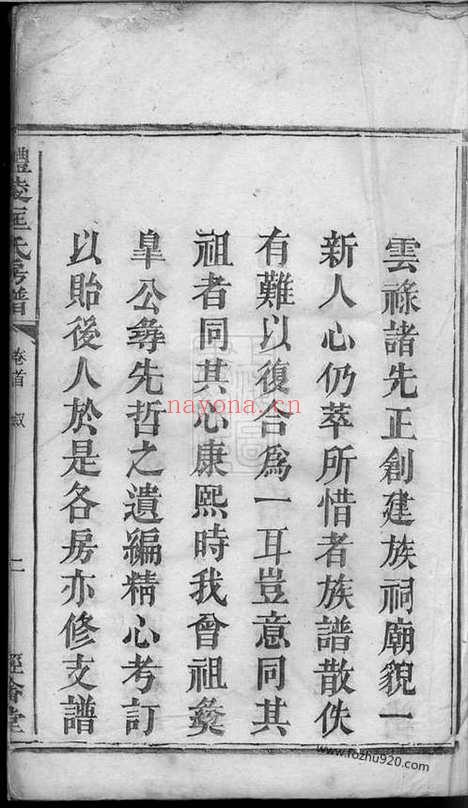 雲祿諸先正創建族祠廟貌一
新人心仍萃所惜者族譜散佚
有難以復合爲一耳豈意同其
祖者同其心康熙時我曾祖彜
皐公彜先哲之遺編精心考訂
以貽後人於是各房亦修支譜
醴陵匡氏房譜
卷首 敘
二
經畬堂
nayona.cn
www.fozhu920.com